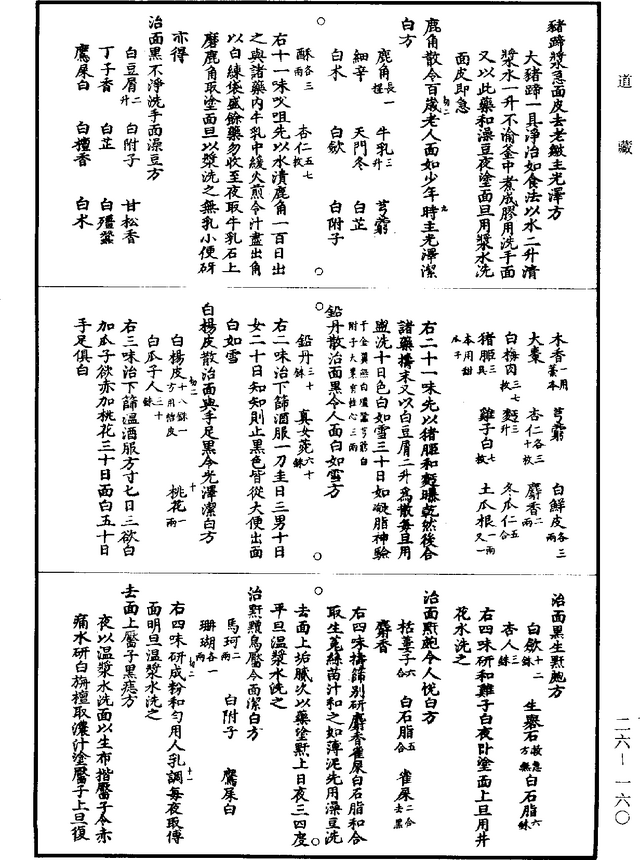 道藏
豬蹄漿急面皮去老皺主光澤方
大豬蹄一具淨治如食法以水二升清
漿水一升不渝釜中煮成膠用洗手面
又以此藥和澡豆夜塗面旦用漿水洗
面皮即急
鹿角散令百歲老人面如少年時主光澤潔
白方
鹿角長一握 牛乳三升 芎藭
細辛 天門冬 白芷
白朮 白斂 白附子
酥各三兩 杏仁五七枚
右十一味㕮咀先以水漬鹿角一百日出
之與諸藥內牛乳中緩火煎令汁盡出角
以白練袋盛餘藥勿收至夜取牛乳石上
磨鹿角取塗面旦以漿洗之無乳小便研
亦得
治面黑不淨洗手面澡豆方
白豆屑二升 白附子 甘松香
丁子香 白芷 白殭蠶
鷹屎白 白檀香 白朮
木香一用藁本 芎藭 白鮮皮各三兩
大棗 杏仁各三十枚 麝香二兩
白梅肉三七枚 麵三升 冬瓜仁五合
豬胰三具 雞子白七枚 土瓜根一兩
右二十一味先以豬胰和麵曝乾然後合
諸藥擣末又以白豆屑二升為散每旦用
盥洗十日色白如雪三十日如凝脂神驗
鉛丹散治面黑令人面白如雪方
鉛丹三十銖 真女菀六十銖
右二味治下篩酒服一刀圭日三男十日
女二十日知知則止黑色皆從大便出面
白如雪
白楊皮散治面與手足黑令光澤潔白方
白楊皮十八銖一方用桔皮 桃花一兩
白瓜子人三十銖
右三味治下篩溫酒服方寸匕日三欲白
加瓜子欲赤加桃花三十日面白五十日
手足俱白
治面黑生䵟皰方
白斂十二銖 生礜石 白石脂六銖
杏人三銖
右四味研和雞子白夜卧塗面上旦用井
花水洗之
治面䵟皰令人悅白方
栝蔞子六合 白石脂五合 雀屎二合去黑
麝香
右四味擣篩別研麝香雀屎白石脂和合
取生菟絲苗汁和之如薄泥先用澡豆洗
去面上垢膩次以藥塗䵟上日夜三四度
平旦溫漿水洗之
治䵟黷烏靨令面潔白方
馬珂二兩 白附子 鷹屎白
珊瑚各一兩
右四味研成粉和勻用人乳調每夜取傅
面明旦溫漿水洗之
去面上靨子黑痣方
夜以溫漿水洗面以生布揩靨子令赤
痛水研白旃檀取濃汁塗靨子上旦復
二六—一六〇